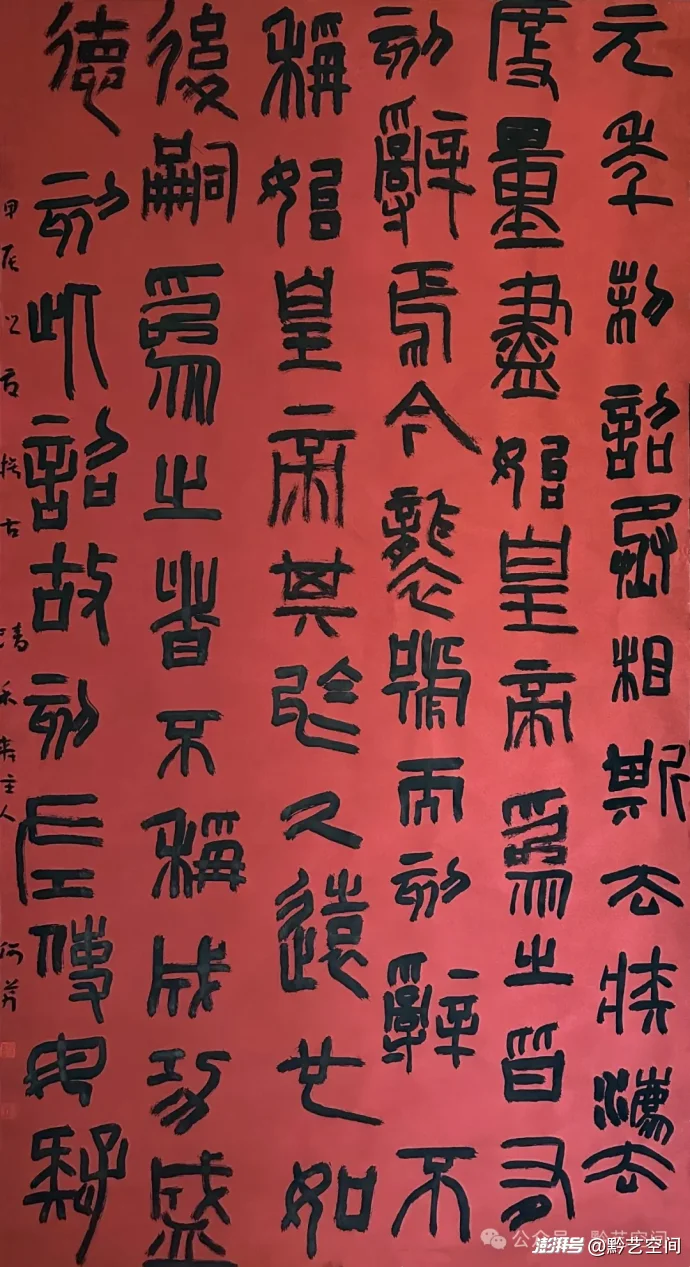 元年制詔丞相斯去疾灋
度量盡始皇帝爲之皆有
刻辭焉今襲號而刻辭不
稱始皇帝其於久遠也如
後嗣爲之者不稱成功盛
德刻此詔故刻左使毋疑
甲辰之 古 主人 何
公众号·黔艺空间
澎湃号@黔艺空间